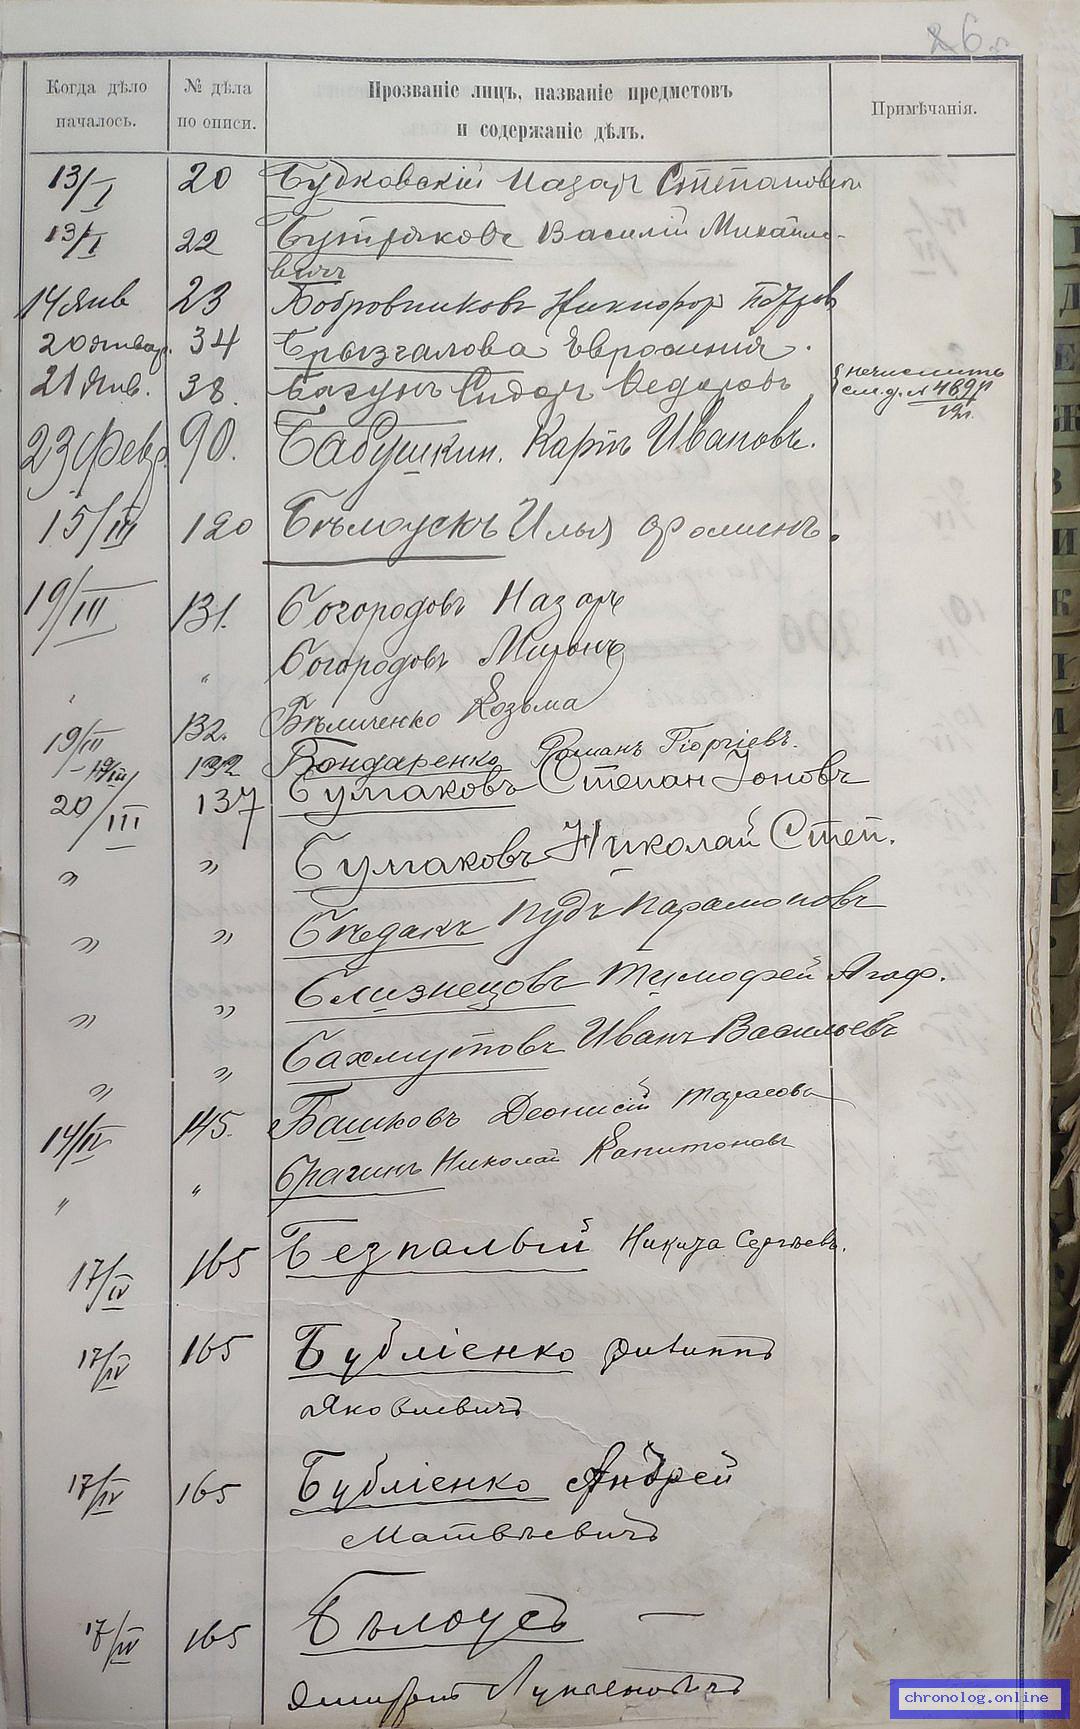 26
Когда дѣло началось.
№ дѣла по описи.
Прозваніе лицъ, названіе предметовъ и содержаніе дѣлъ.
Примѣчанія.
13/I 20 Будковскій Назар Степанович
13/I 22 Бутряковъ Василій Михайло-
вичъ
14 Янв 23 Бобровниковъ Никифор
20 январ. 34 Брызгалова Евросинія.
21 Янв. 38. Багунъ Сидор Федоровъ
см. д. № 489
23 Февр. 90. Бабушкин. Карпъ Ивановъ.
15/III 120 Бѣлоускъ Илья Фоминъ.
19/III 131. Богородовъ Назаръ
" Богородовъ Миронъ
19/III 132. Бѣличенко Козьма
19/III 132 Бондаренко Романъ Гіоргіевъ.
20/III 137 Булгаковъ Степан Іоновъ
" " Булгаковъ Николай Степ.
" " Бѣдакъ Пудъ Парамоновъ
" " Близнецовъ Тимофей Агаф.
" " Бахмутовъ Иванъ Васильевъ
14/IV 145. Башковъ Деонисій Тарасовъ
" " Брагинъ Николай Капитоновъ
17/IV 165 Безпалый Никита Сергѣевъ.
17/IV 165 Бубліенко Филиппъ
Яковлевичъ
17/IV 165 Бубліенко Андрей
Матвѣевичъ
17/IV 165 Бѣлоусъ —
Дмитрій Лукьеновичъ
chronolog.online